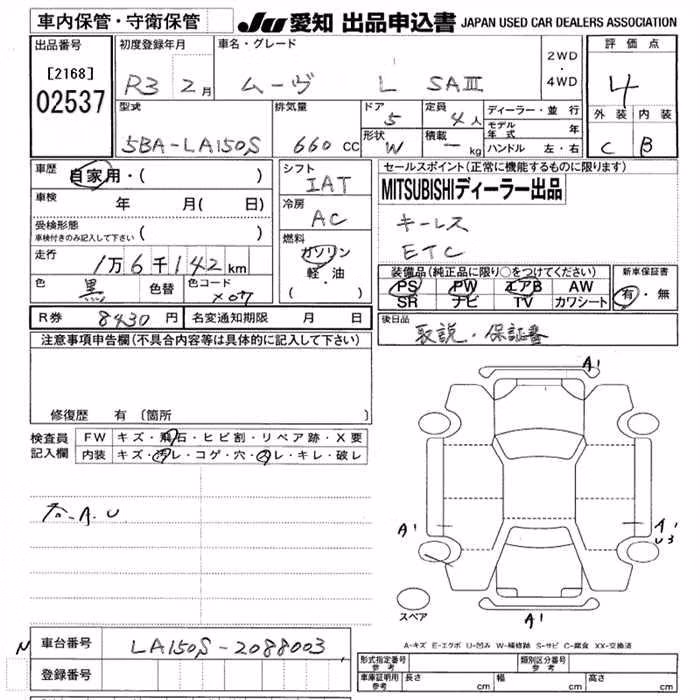 車内保管・守衛保管 JU 愛知 出品申込書 JAPAN USED CAR DEALERS ASSOCIATION
出品番号 初度登録年月 車名・グレード 2WD・4WD 評価点
[2168] R3 2月 ムーヴ L SAⅢ 4
02537
型式 排気量 ドア 定員 ディーラー・並行 外装 内装
5BA-LA150S 660 CC 5 4人 モデル年式 年 C B
形状 W 積載 - kg ハンドル 左・右
車歴 自家用・( ) シフト IAT セールスポイント(正常に機能するものに限ります)
車検 年 月( 日) 冷房 AC MITSUBISHIディーラー出品
受検形態 車検付きのみ記入して下さい ( ) キーレス
走行 1万6千142km 燃料 ガソリン・軽油・( ) ETC
色 黒 色替 色コード X07 装備品(純正品に限り○をつけてください) 新車保証書
PS PW エアB AW 有・無
SR ナビ TV カワシート
R券 8430円 名変通知期限 月 日 後日品
取説・保証書
注意事項申告欄(不具合内容等は具体的に記入して下さい)
A1
修復歴 有 〔箇所 〕
検査員記入欄 FW キズ・飛石・ヒビ割・リペア跡・X要
内装 キズ・汚レ・コゲ・穴・スレ・キレ・破レ
A.U
A1 A1 U3
スペア A1
A-キズ E-エクボ U-凹み W-補修跡 S-サビ C-腐食 XX-交換済
N 車台番号 LA150S-2088003
登録番号 形式指定番号 参考 類別区分番号 参考
車庫証明用 参考 長さ cm 幅 cm 高さ cm